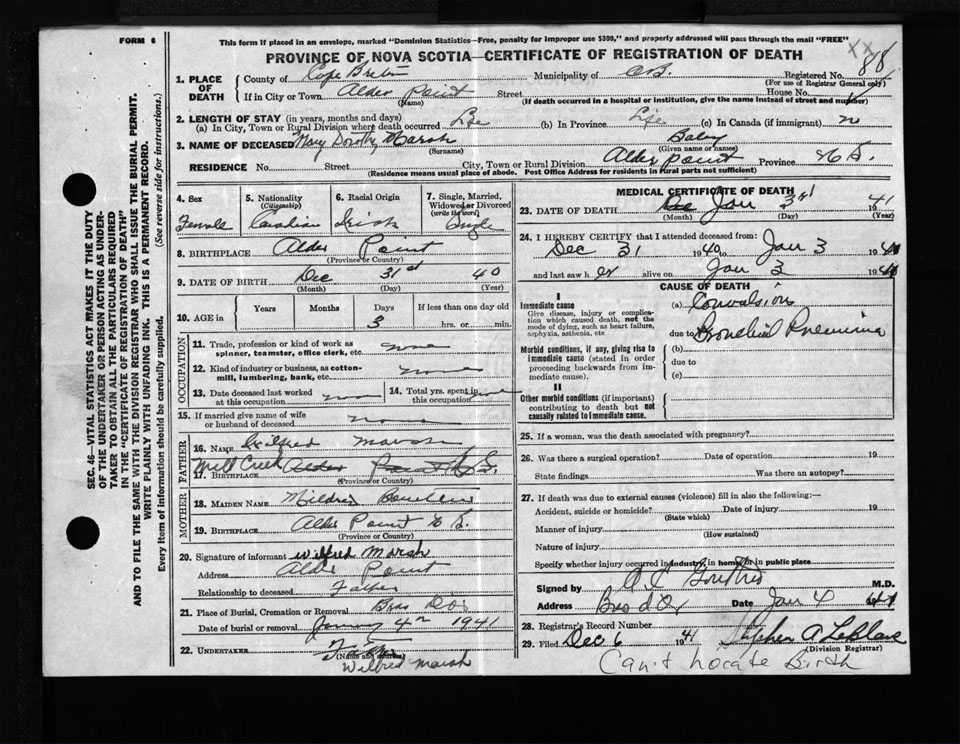 FORM 6
This form if placed in an envelope, marked "Dominion Statistics—Free, penalty for improper use $300," and properly addressed will pass through the mail "FREE"
PROVINCE OF NOVA SCOTIA—CERTIFICATE OF REGISTRATION OF DEATH
XX
1. PLACE OF DEATH County of Cape Breton Municipality of C.B. Registered No. 88
(For use of Registrar General only)
If in City or Town Alder Point Street House No.
(Name) (If death occurred in a hospital or institution, give the name instead of street and number)
2. LENGTH OF STAY (in years, months and days)
(a) In City, Town or Rural Division where death occurred Life (b) In Province Life (c) In Canada (if immigrant) no
3. NAME OF DECEASED Mary Dorothy Marsh Baby
(Surname) (Given name or names)
RESIDENCE No. Street City, Town or Rural Division Alder point Province N.S.
(Residence means usual place of abode. Post Office Address for residents in Rural parts not sufficient)
4. Sex Female
5. Nationality (Citizenship) Canadian
6. Racial Origin Irish
7. Single, Married, Widowed or Divorced (write the word) Single
8. BIRTHPLACE Alder Point
(Province or Country)
9. DATE OF BIRTH Dec 31st 40
(Month) (Day) (Year)
10. AGE in Years Months Days 3 If less than one day old hrs. or min.
OCCUPATION
11. Trade, profession or kind of work as spinner, teamster, office clerk, etc. none
12. Kind of industry or business, as cotton-mill, lumbering, bank, etc. none
13. Date deceased last worked at this occupation non 14. Total yrs. spent in this occupation
15. If married give name of wife or husband of deceased none
FATHER
16. Name Wilfred Marsh
17. Birthplace Mill Creek Alder Point N.S.
(Province or Country)
MOTHER
18. MAIDEN NAME Mildred
19. BIRTHPLACE Alder Point C.B.
(Province or Country)
20. Signature of informant Wilfred Marsh
Address Alder Point
Relationship to deceased Father
21. Place of Burial, Cremation or Removal Bras D'Or
Date of burial or removal January 4th 1941
22. UNDERTAKER Father
(Name and address)
Wilfred Marsh
MEDICAL CERTIFICATE OF DEATH
23. DATE OF DEATH Dec Jan 3rd 1941
(Month) (Day) (Year)
24. I HEREBY CERTIFY that I attended deceased from:
Dec 31 1940 to Jan 3 1941
and last saw her alive on Jan 3 1941
CAUSE OF DEATH
I
Immediate cause
Give disease, injury or complication which caused death, not the mode of dying, such as heart failure, asphyxia, asthenia, etc.
(a) Convulsions
due to Bronchial Pneumonia
Morbid conditions, if any, giving rise to immediate cause (stated in order proceeding backwards from immediate cause).
(b)
due to
(c)
II
Other morbid conditions (if important) contributing to death but not causally related to immediate cause.
25. If a woman, was the death associated with pregnancy?
26. Was there a surgical operation? Date of operation 19
State findings Was there an autopsy?
27. If death was due to external causes (violence) fill in also the following:—
Accident, suicide or homicide? Date of injury 19
(State which)
Manner of injury
(How sustained)
Nature of injury
Specify whether injury occurred in industry, in home, or in public place
Signed by M.D.
Address Bras d'Or Date Jan 4 41
28. Registrar's Record Number
29. Filed Dec 6 1941 Stephen A LeBlanc
(Division Registrar)
Can't Locate Birth
SEC. 46—VITAL STATISTICS ACT MAKES IT THE DUTY
OF THE UNDERTAKER OR PERSON ACTING AS UNDER-
TAKER TO OBTAIN ALL THE PARTICULARS REQUIRED
IN THE "CERTIFICATE OF REGISTRATION OF DEATH"
AND TO FILE THE SAME WITH THE DIVISION REGISTRAR WHO SHALL ISSUE THE BURIAL PERMIT.
WRITE PLAINLY WITH UNFADING INK. THIS IS A PERMANENT RECORD.
Every item of information should be carefully supplied. (See reverse side for instructions.)